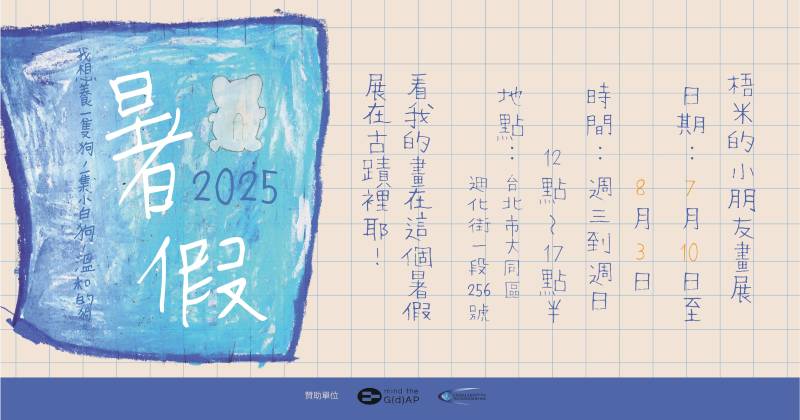 梧米的小朋友畫展
日期：7月10日至
8月3日
時間：週三到週日
12點～17點半
地點：台北市大同區
迪化街一段256號
看我的畫在這個暑假
展在古蹟裡耶！
暑假
2025
我想養一隻狗，隻小白狗，溫和的狗
贊助單位
mind the
G(d)AP